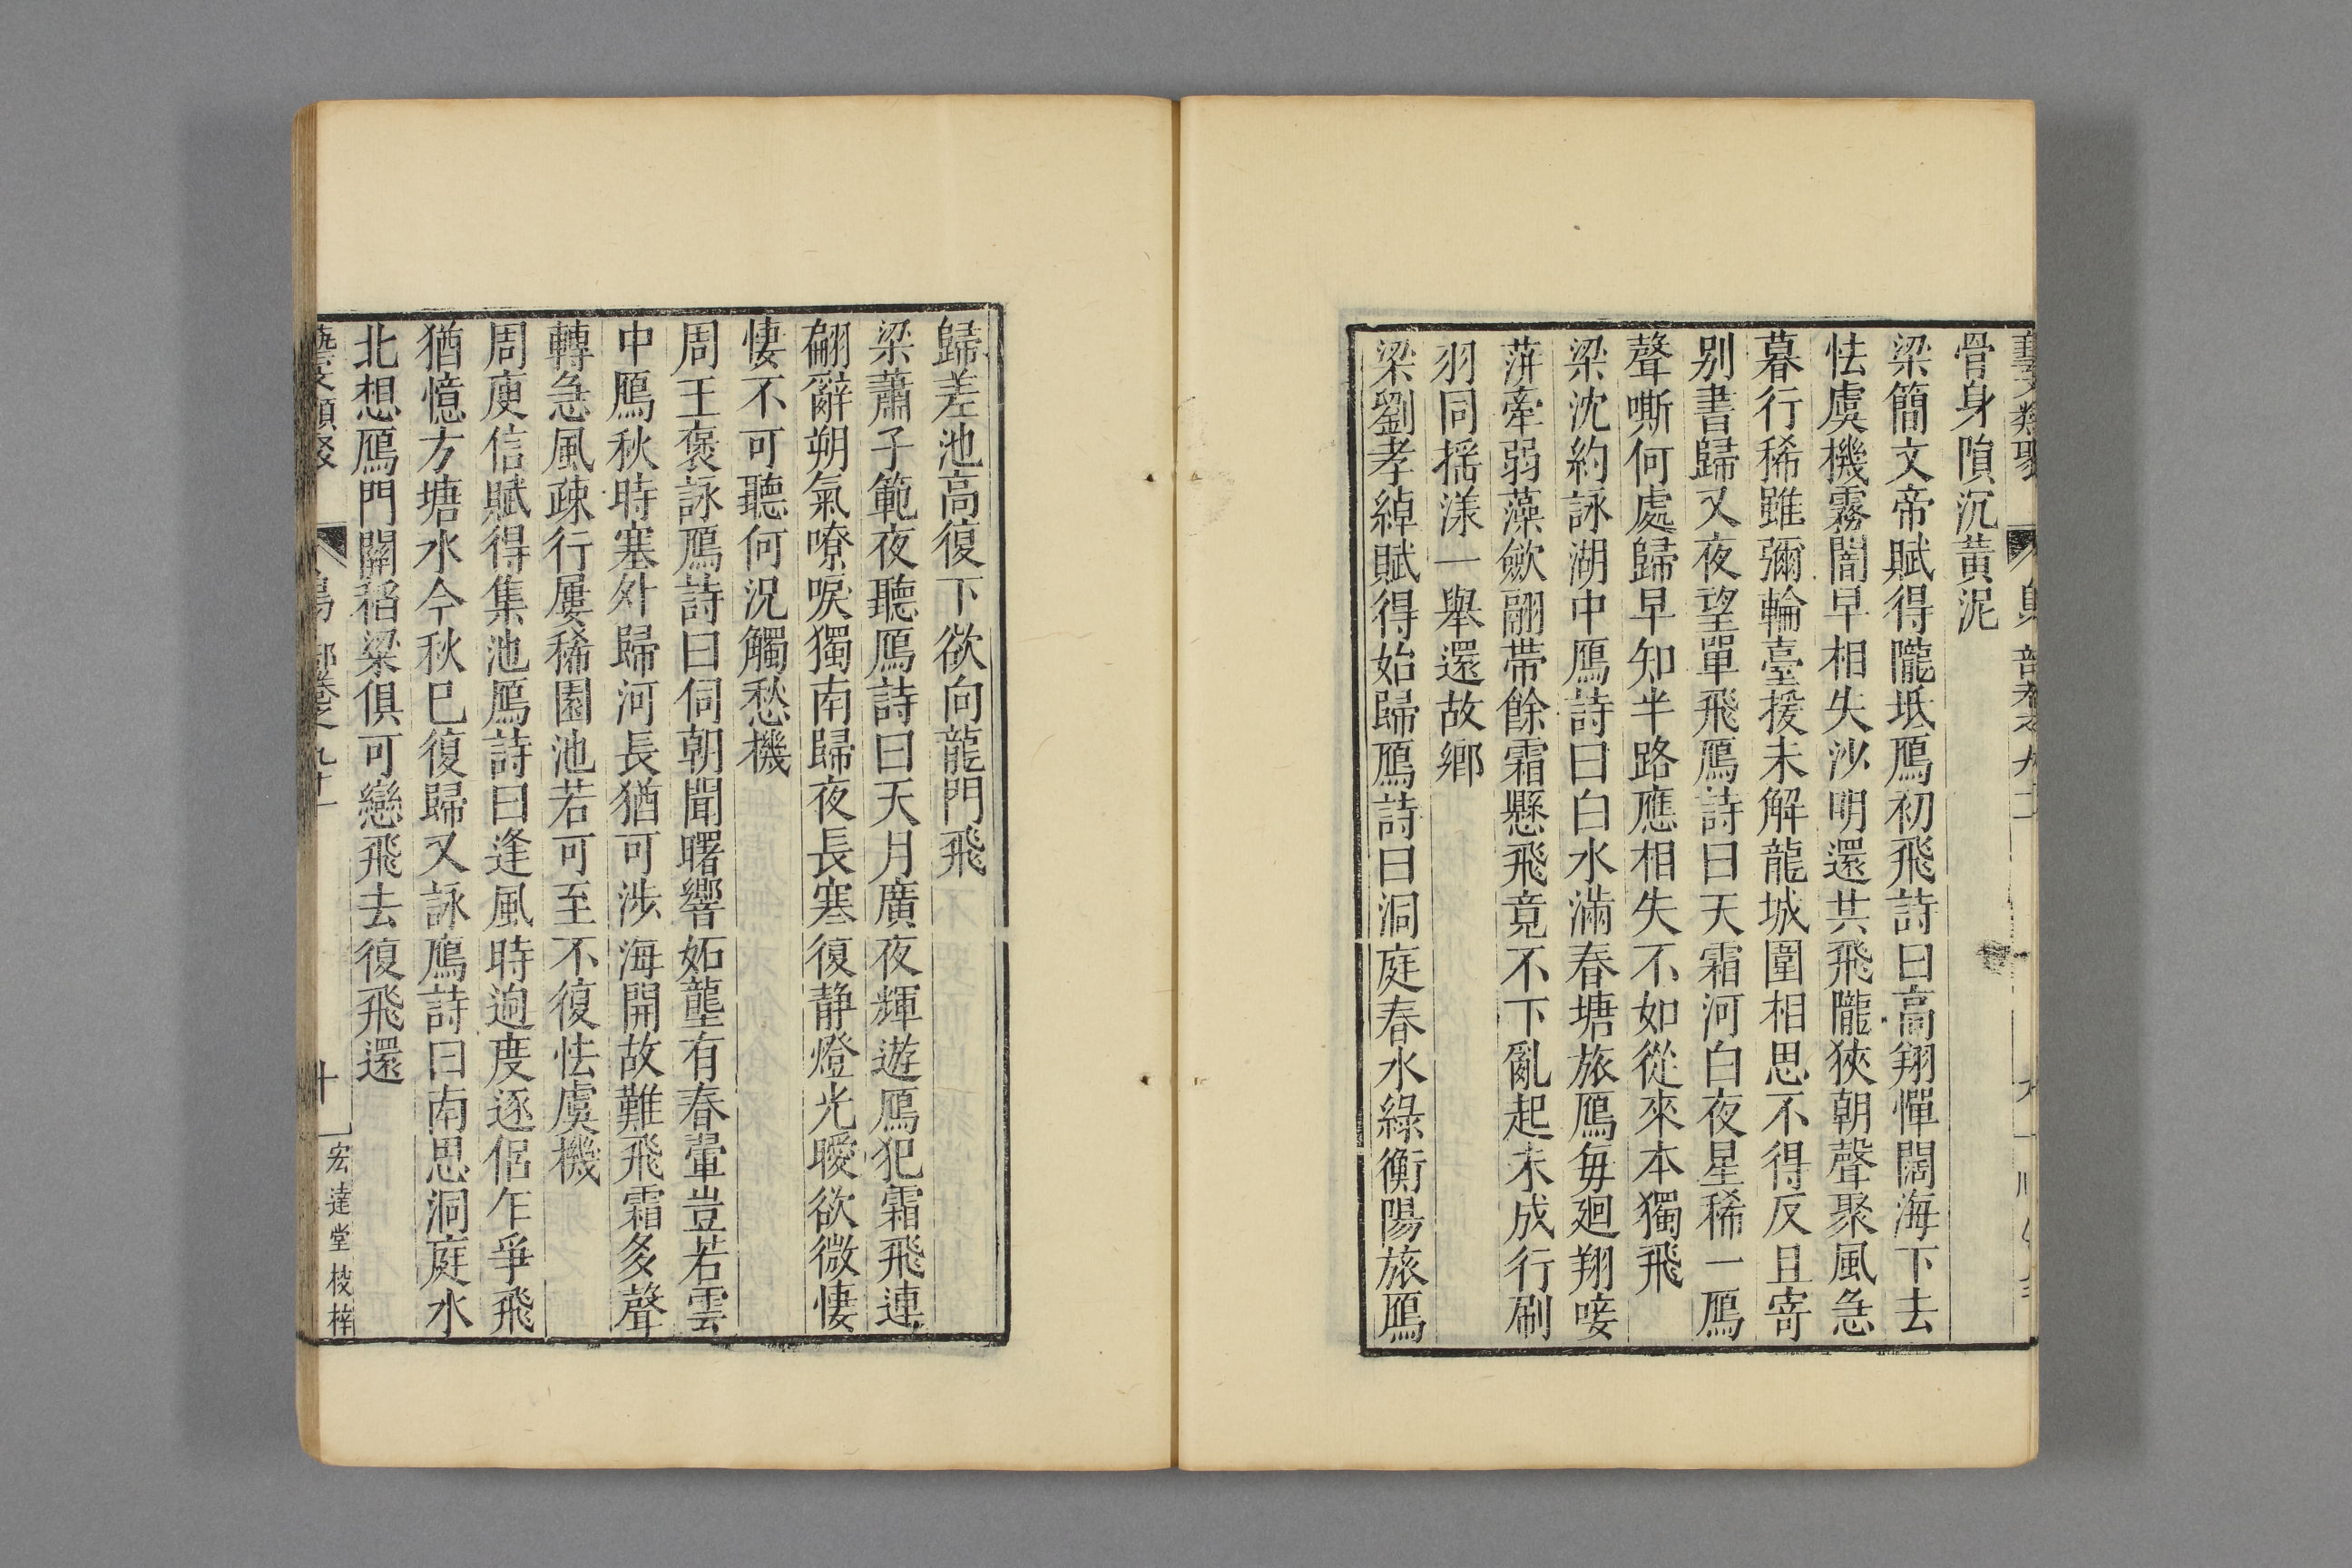 藝文類聚 鳥部卷之九十一
骨身隕沉黃泥
梁簡文帝賦得隴坻鴈初飛詩曰高翔憚闊海下去
怯虞機霧闇早相失沙明還共飛隴狹朝聲聚風急
暮行稀雖彌輪臺援未解龍城圍相思不得反且寄
别書歸又夜望單飛鴈詩曰天霜河白夜星稀一鴈
聲嘶何處歸早知半路應相失不如從來本獨飛
梁沈約詠湖中鴈詩曰白水滿春塘旅鴈每廻翔唼
蓱牽弱藻歛翮帶餘霜懸飛竟不下亂起未成行刷
羽同摇漾一舉還故鄉
梁劉孝綽賦得始歸鴈詩曰洞庭春水綠衡陽旅鴈
歸差池高復下欲向龍門飛
梁蕭子範夜聽鴈詩曰天月廣夜輝遊鴈犯霜飛連
翩辭朔氣嘹唳獨南歸夜長寒復静燈光曖欲微悽
悽不可聽何況觸愁機
周王褒詠鴈詩曰伺朝聞曙響妬壟有春翬豈若雲
中鴈秋時塞外歸河長猶可涉海開故難飛霜多聲
轉急風疎行屢稀園池若可至不復怯虞機
周庾信賦得集池鴈詩曰逢風時迥度逐侶乍爭飛
猶憶方塘水今秋已復歸又詠鴈詩曰南思洞庭水
北想鴈門關稻粱俱可戀飛去復飛還
藝文類聚 鳥部卷之九十一 十 宏達堂校梓